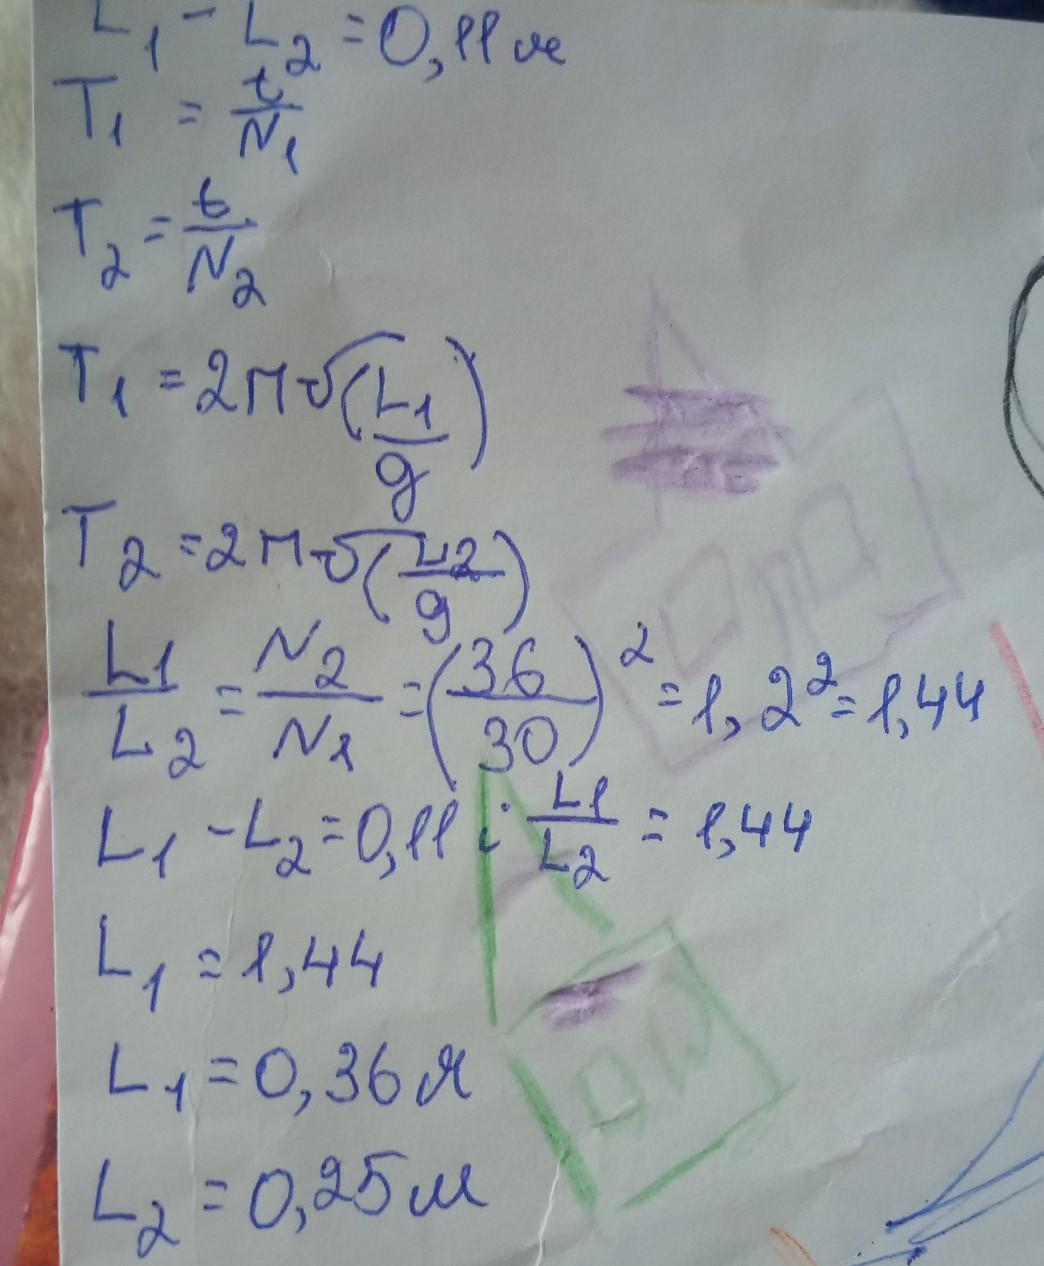 L₁ - L₂ = 0,11 м
T₁ = t/N₁
T₂ = t/N₂
T₁ = 2π√(L₁/g)
T₂ = 2π√(L2/g)
L1/L2 = N₂/N₁ = (36/30)² = 1,2² = 1,44
L₁ - L₂ = 0,11 i L1/L2 = 1,44
L₁ = 1,44
L₁ = 0,36 м
L₂ = 0,25 м